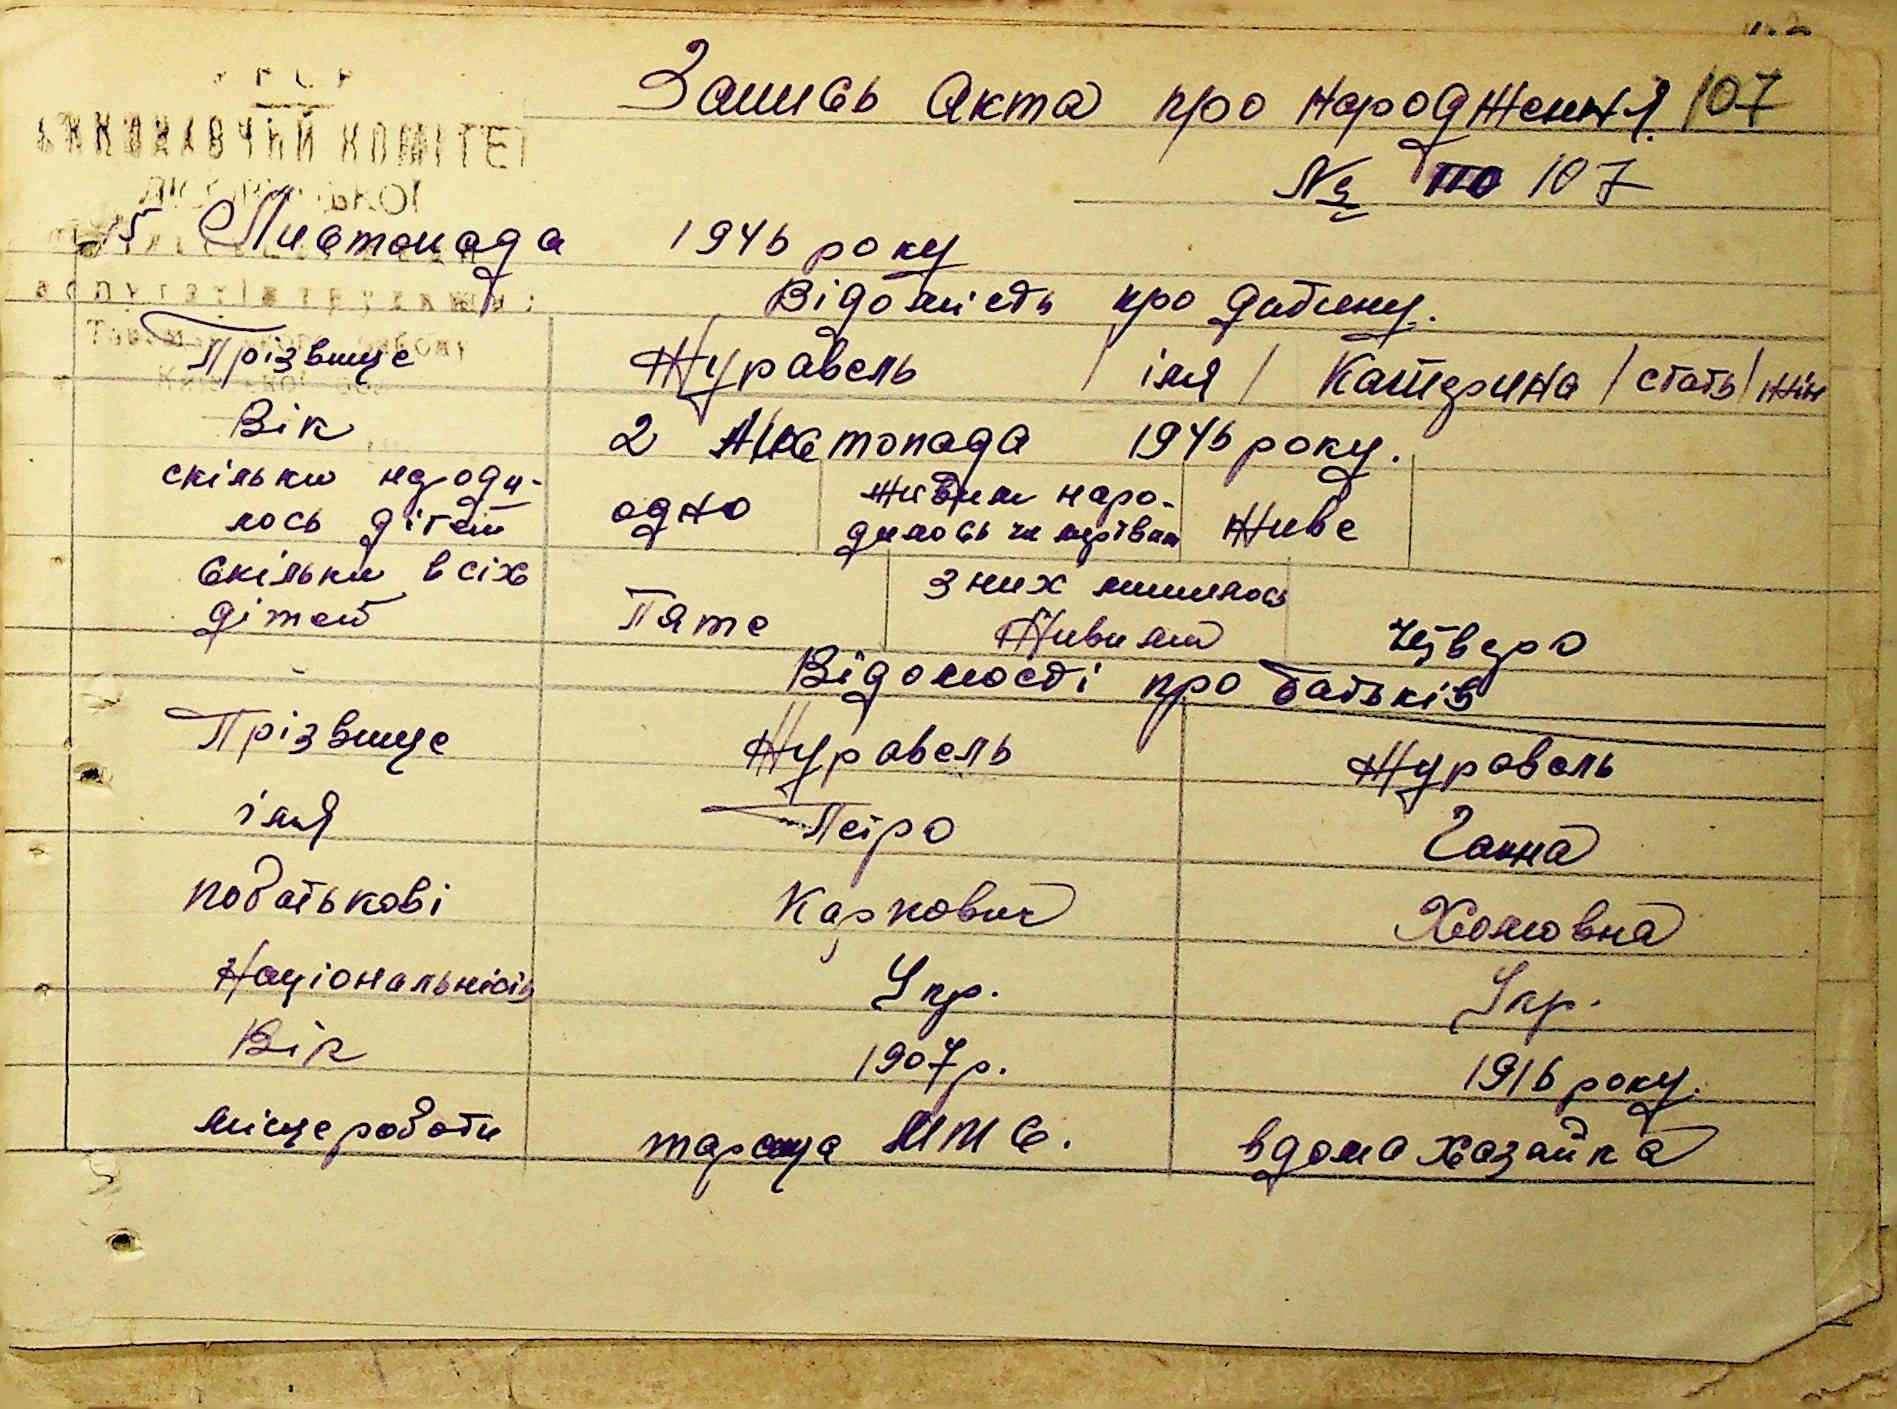 Запись Акта про народження 107
№ 107
УРСР
ВИКОНАВЧИЙ КОМІТЕТ
15 Листопада 1946 року
Відомість про дитину.
Прізвище Журавель / імя / Катерина / стать / жін
Вік 2 Листопада 1946 року.
скільки народи-
лось дітей одно живим наро-
дилось чи мертвим Живе
скільки всіх
дітей Пяте з них лишилось
Живими Четверо
Відомості про батьків
Прізвище Журавель Журавель
імя Петро Ганна
побатькові Карпович Хомовна
Національність Укр. Укр.
Вік 1907р. 1916 року.
місце роботи тараща МТС. вдома хазайка